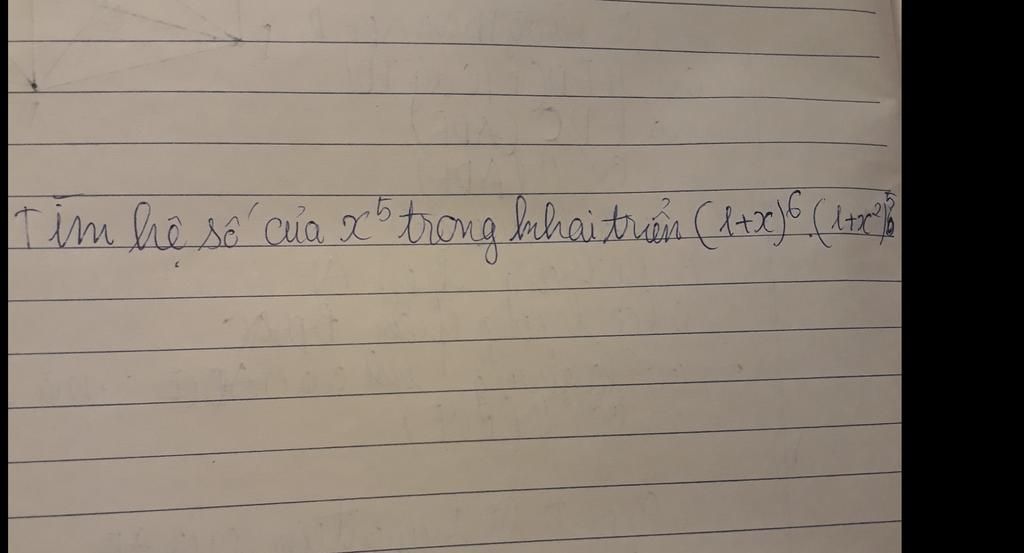 Tìm hệ số của x⁵ trong khai triển (1+x)⁶.(1+x²)⁵